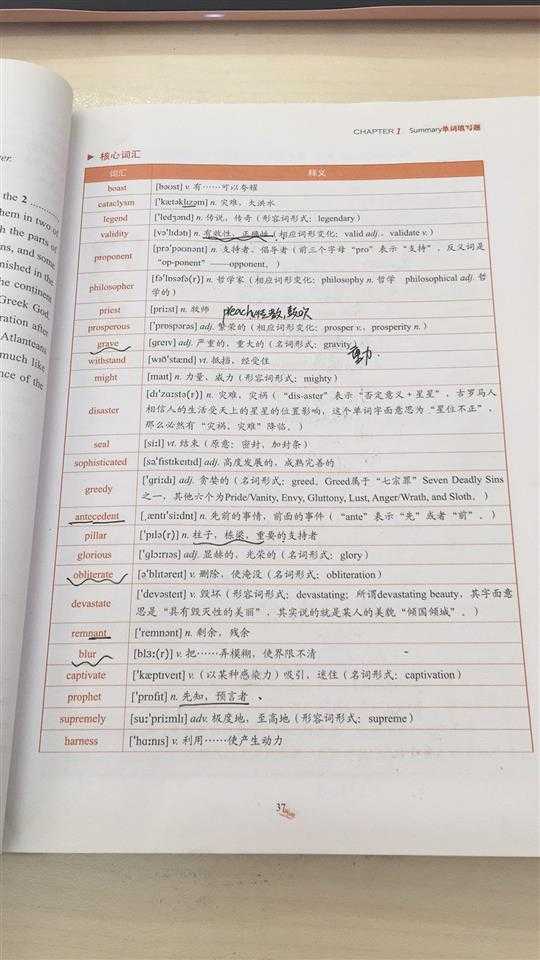 er.
the 2 ............
hem in two of
h the parts of
ns, and some
nished in the
the continent
Greek God
ration after
Atlanteans
much like
nce of the
CHAPTER 1 Summary单词填写题
▶ 核心词汇
词汇 释义
boast [bəʊst] v. 有……可以夸耀
cataclysm ['kætəklɪzəm] n. 灾难，大洪水
legend ['ledʒənd] n. 传说，传奇（形容词形式：legendary）
validity [və'lɪdəti] n. 有效性，正确性（相应词形变化：valid adj.、validate v.）
proponent [prə'pəʊnənt] n. 支持者，倡导者（前三个字母“pro”表示“支持”，反义词是
“op-ponent”——opponent。）
philosopher [fə'lɒsəfə(r)] n. 哲学家（相应词形变化：philosophy n. 哲学 philosophical adj. 哲
学的）
priest [priːst] n. 牧师 preach
prosperous ['prɒspərəs] adj. 繁荣的（相应词形变化：prosper v.、prosperity n.）
grave [ɡreɪv] adj. 严重的，重大的（名词形式：gravity） 重力
withstand [wɪð'stænd] vt. 抵挡，经受住
might [maɪt] n. 力量，威力（形容词形式：mighty）
disaster [dɪ'zɑːstə(r)] n. 灾难，灾祸（“dis-aster”表示“否定意义+星星”，古罗马人
相信人的生活受天上的星星的位置影响，这个单词字面意思为“星位不正”，
那么必然有“灾祸，灾难”降临。）
seal [siːl] vt. 结束（原意：密封，加封条）
sophisticated [sə'fɪstɪkeɪtɪd] adj. 高度发展的，成熟完善的
greedy ['ɡriːdɪ] adj. 贪婪的（名词形式：greed。Greed属于“七宗罪”Seven Deadly Sins
之一，其他六个为Pride/Vanity, Envy, Gluttony, Lust, Anger/Wrath, and Sloth。）
antecedent [ˌæntɪ'siːdnt] n. 先前的事情，前面的事件（“ante”表示“先”或者“前”。）
pillar ['pɪlə(r)] n. 柱子，栋梁，重要的支持者
glorious ['ɡlɔːrɪəs] adj. 显赫的，光荣的（名词形式：glory）
obliterate [ə'blɪtəreɪt] v. 删除，使淹没（名词形式：obliteration）
devastate ['devəsteɪt] v. 毁坏（形容词形式：devastating；所谓devastating beauty，其字面意
思是“具有毁灭性的美丽”，其实说的就是某人的美貌“倾国倾城”。）
remnant ['remnənt] n. 剩余，残余
blur [blɜː(r)] v. 把……弄模糊，使界限不清
captivate ['kæptɪveɪt] v.（以某种感染力）吸引，迷住（名词形式：captivation）
prophet ['prɒfɪt] n. 先知，预言者
supremely [suː'priːmlɪ] adv. 极度地，至高地（形容词形式：supreme）
harness ['hɑːnɪs] v. 利用……使产生动力
37